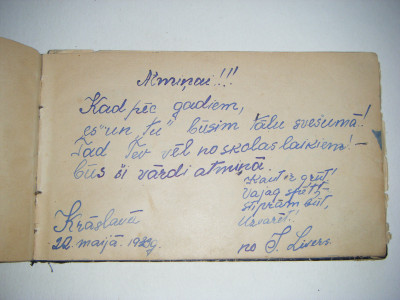 Atmiņai!!!
Kad pēc gadiem,
es "un tu" būsim tālu svešumā!
Tad Tev vēl no skolas laikiem! -
būs šī vārdi atmiņā.
"Kaut ir grūt!
Vajag spēt -
stipram būt,
Uzvarēt!.
Krāslavā
22. maijā. 19 g.
no J. Livers.